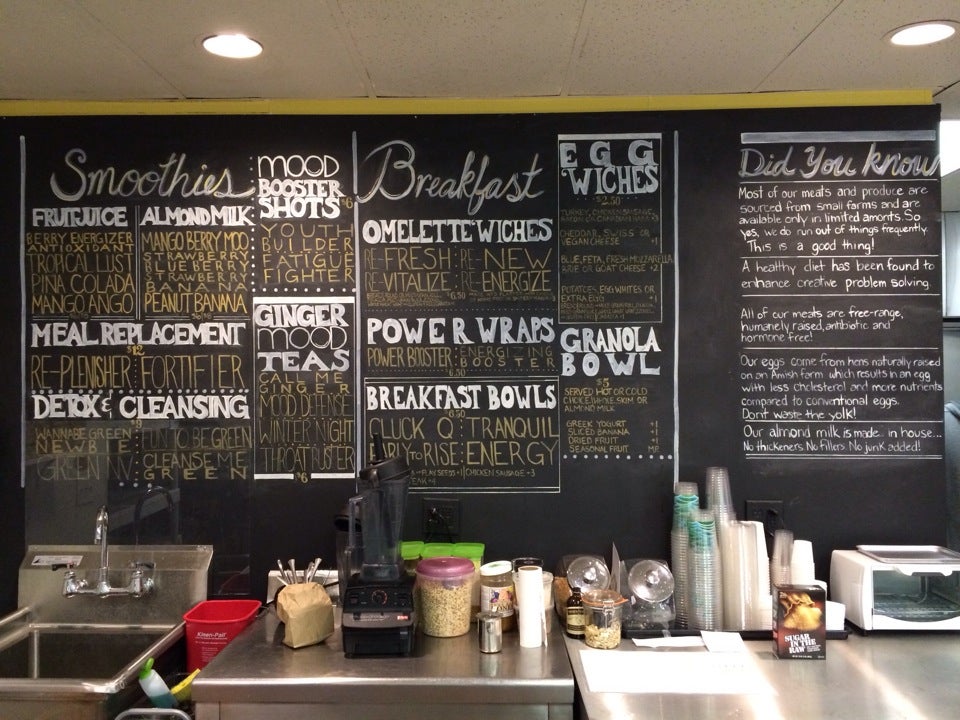 Smoothies
FRUIT JUICE
BERRY ENERGIZER
ANTIOXIDANT
TROPICAL LUST
PINA COLADA
MANGO ANGO
ALMOND MILK
MANGO BERRY MOO
STRAWBERRY
BLUEBERRY
STRAWBERRY
BANANA
PEANUT BANANA
MEAL REPLACEMENT
$12
RE-PLENISHER
FORTIFIER
DETOX & CLEANSING
WANNABE GREEN
NEWBIE
GREEN
FUN TO BE GREEN
CLEANSE ME
GREEN
MOOD
BOOSTER
SHOTS
$6
YOUTH
BUILDER
FATIGUE
FIGHTER
GINGER
MOOD
TEAS
CALL ME
GINGER
MOOD DEFENSE
WINTER NIGHT
THROAT DUSTER
$6
Breakfast
OMELETTE'WICHES
RE-FRESH
RE-VITALIZE
RE-NEW
RE-ENERGIZE
$6.50
POWER WRAPS
POWER BOOSTER
ENERGIZING
BOOSTER
$6.50
BREAKFAST BOWLS
$6.50
CLUCK Q
TRANQUIL
EARLY TO RISE
ENERGY
CHICKEN SAUSAGE +3
EGG
'WICHES
$2.50
TURKEY, CHICKEN SAUSAGE,
BACON OR CANADIAN HAM +3
CHEDDAR, SWISS OR
VEGAN CHEESE +1
BLUE, FETA, FRESH MOZZARELLA,
BRIE OR GOAT CHEESE +2
POTATOES, EGG WHITES OR
EXTRA EGG +1
GRANOLA
BOWL
$5
SERVED HOT OR COLD
CHOICE WHOLE, SKIM OR
ALMOND MILK
GREEK YOGURT +1
SLICED BANANA +1
DRIED FRUIT +1
SEASONAL FRUIT MP
Did You know
Most of our meats and produce are
sourced from small farms and are
available only in limited amonts. So
yes, we do run out of things frequently.
This is a good thing!
A healthy diet has been found to
enhance creative problem solving.
All of our meats are free-range,
humanely raised, antibiotic and
hormone free!
Our eggs come from hens naturally raised
on an Amish farm which results in an egg
with less cholesterol and more nutrients
compared to conventional eggs.
Don't waste the yolk!
Our almond milk is made in house...
No thickeners. No fillers. No junk added!
Kleen-Pail
SUGAR
IN THE
RAW